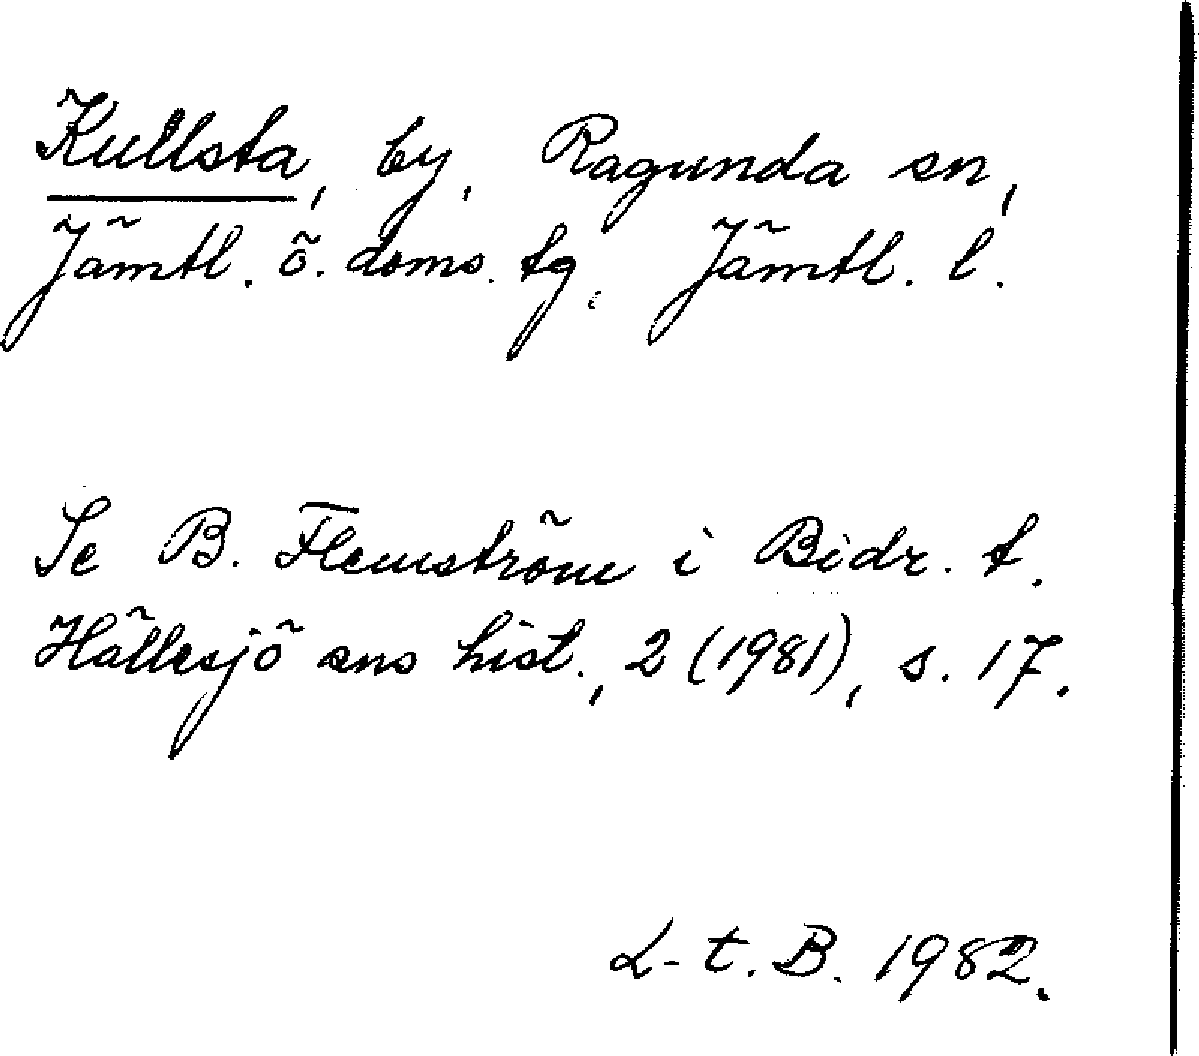 Kullsta, by, Ragunda sn,
Jämtl. ö. doms. tg. Jämtl. l.
Se B. Flemström i Bidr. t.
Hällesjö sns hist., 2 (1981), s. 17.
L-t. B. 1982.